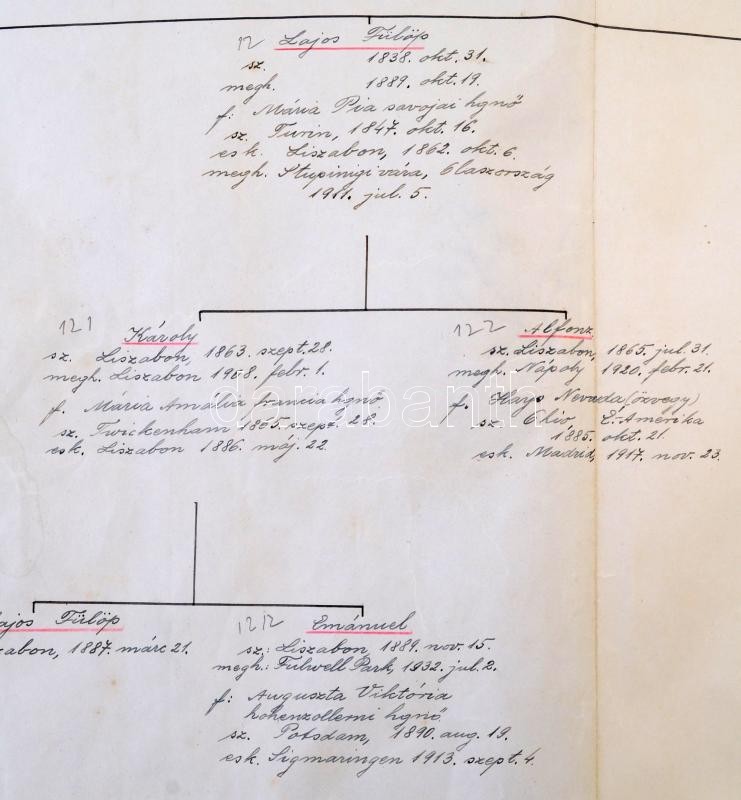 12 Lajos Fülöp
sz. 1838. okt. 31.
megh. 1889. okt. 19.
f: Mária Pia savojai hgnő
sz. Turin, 1847. okt. 16.
esk. Liszabon, 1862. okt. 6.
megh. Stupinigi vára, Olaszország
1911. jul. 5.
121 Károly
sz. Liszabon, 1863. szept. 28.
megh. Liszabon 1908. febr. 1.
f. Mária Amália francia hgnő
sz. Twickenham 1865. szept. 28.
esk. Liszabon 1886. máj. 22.
122 Alfonz
sz. Liszabon, 1865. jul. 31.
megh. Nápoly 1920. febr. 21.
f. Hays Nevada (özvegy)
sz. Ohio, É. Amerika
1885. okt. 21.
esk. Madrid, 1917. nov. 23.
ajos Fülöp
zabon, 1887. márc 21.
1212 Emánuel
sz.: Liszabon, 1889. nov. 15.
megh.: Fulwell Park, 1932. jul. 2.
f: Auguszta Viktória
hohenzollerni hgnő
sz. Potsdam, 1890. aug. 19.
esk. Sigmaringen 1913. szept. 4.
darabanth